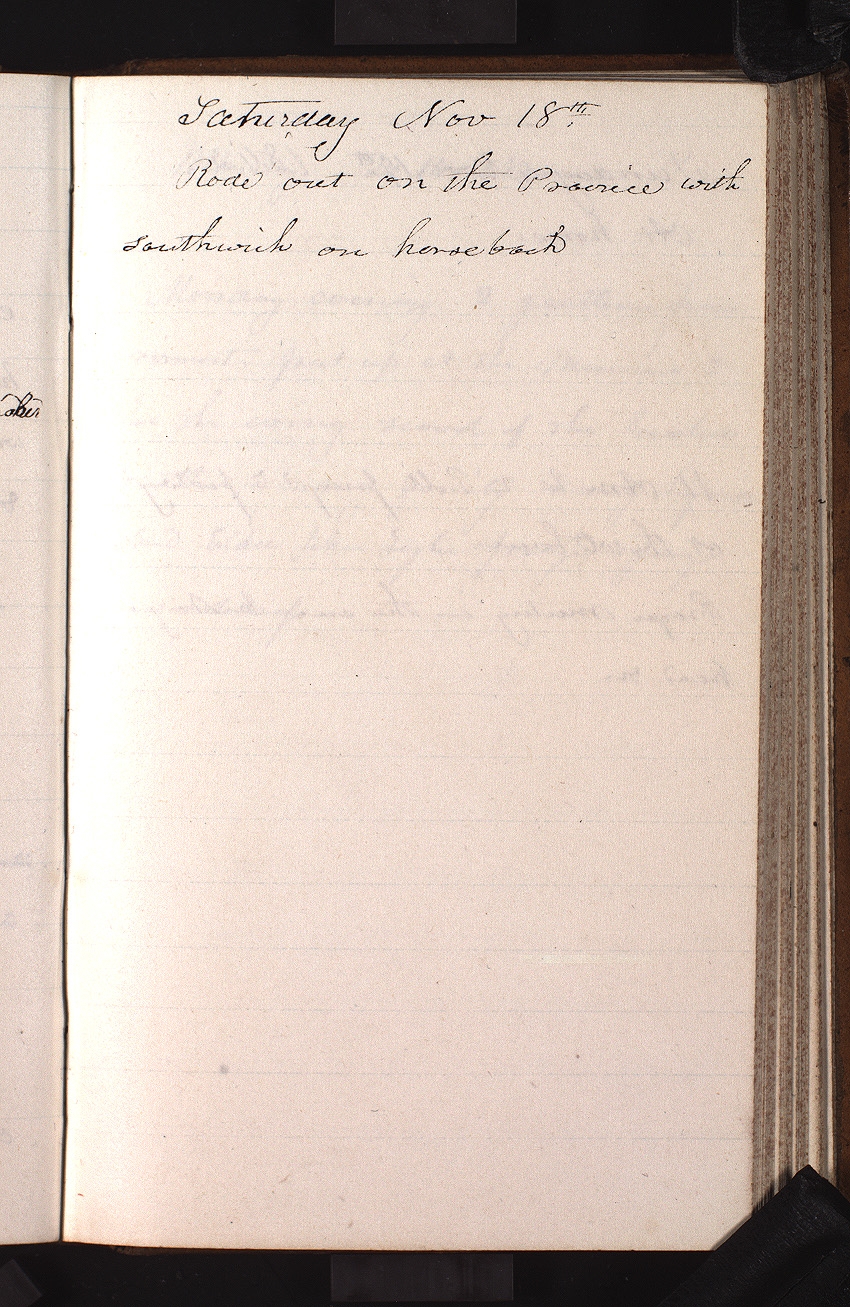 Saturday Nov 18th
Rode out on the Prairie with
Southwick on horseback